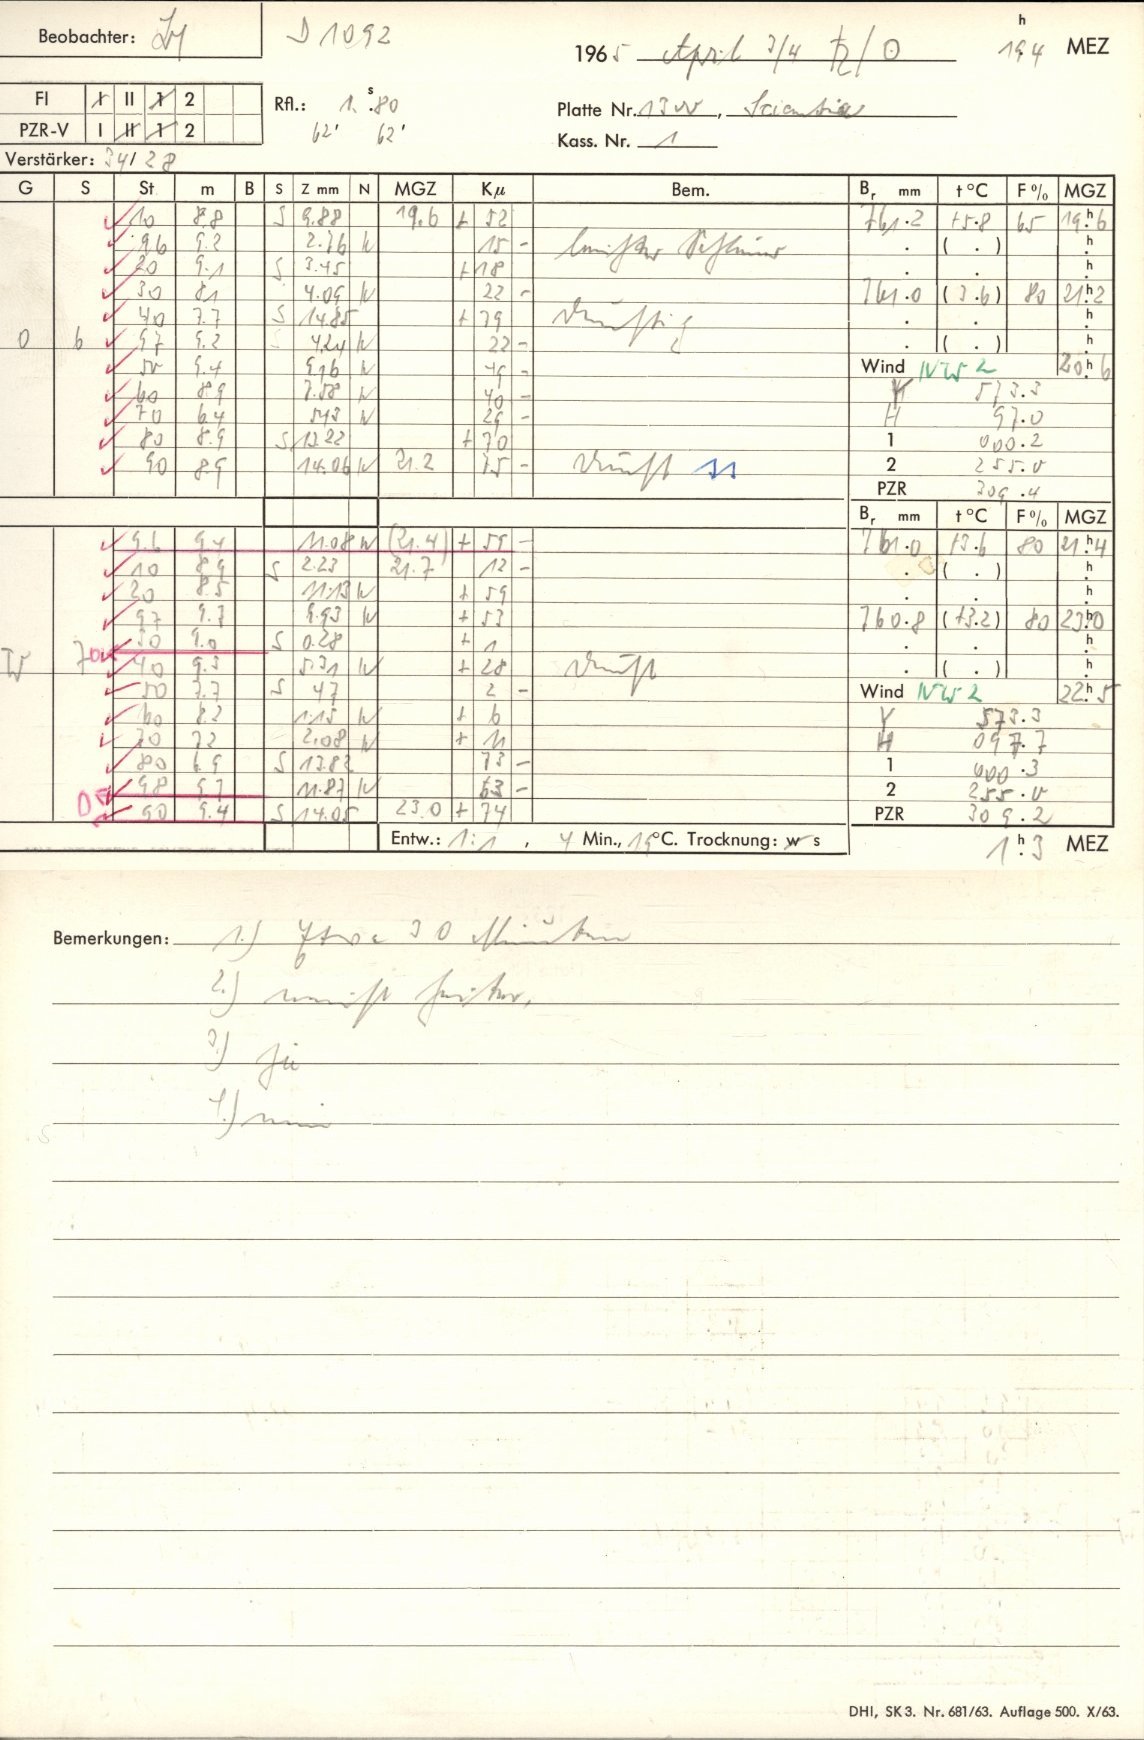 Beobachter:
D 1092
1965 April 3/4 ♄/☉
h
194 MEZ
FI I II 1 2
PZR-V I II 1 2
Rfl.: 1.s80
62' 62'
Platte Nr. 1300,
Kass. Nr. 1
Verstärker: 34/28
G S St m B S Z mm N MGZ Kμ Bem. Br mm t °C F % MGZ
10 8.8 S 9.88 19.6 + 52 761.2 +5.8 65 19.h6
96 9.2 2.76 N 15 - . ( . ) h
20 9.1 S 3.45 + 18 . . h
30 8.1 4.09 N 22 - 761.0 (3.6) 80 21.h2
40 7.7 S 14.85 + 79 dunstig . . h
O 6 97 9.2 4.24 N 22 - . ( . ) h
50 9.4 9.16 N 49 - Wind NW 2 20.h6
60 8.9 7.58 N 40 - V 573.3
70 6.4 5.43 N 29 - H 97.0
80 8.9 S 13.22 + 70 1 000.2
90 8.9 14.06 N 21.2 75 - Dunst 2 255.0
PZR 309.4
Br mm t °C F % MGZ
96 9.4 11.08 N (21.4) + 59 - 761.0 +3.6 80 21.h4
10 8.9 S 2.23 21.7 12 - . ( . ) h
20 8.5 11.13 N + 59 . . h
97 9.3 9.93 N + 53 760.8 (+3.2) 80 23.h0
30 9.0 S 0.28 + 1 . . h
W 70 40 9.3 5.31 N + 28 Dunst . ( . ) h
50 7.7 S 47 2 - Wind NW 2 22.h5
60 8.2 1.15 N + 6 V 573.3
70 7.2 2.08 N + 11 H 097.7
80 6.9 S 13.82 73 - 1 000.3
98 9.7 11.87 N 63 - 2 255.0
90 9.4 S 14.05 23.0 + 74 PZR 309.2
Entw.: 1:1, 4 Min., 19°C. Trocknung: w s
1.h3 MEZ
Bemerkungen: 1.) Etwa 30 Minuten
2.) meist heiter,
3.) ja
4.) nein
DHI, SK 3. Nr. 681/63. Auflage 500. X/63.